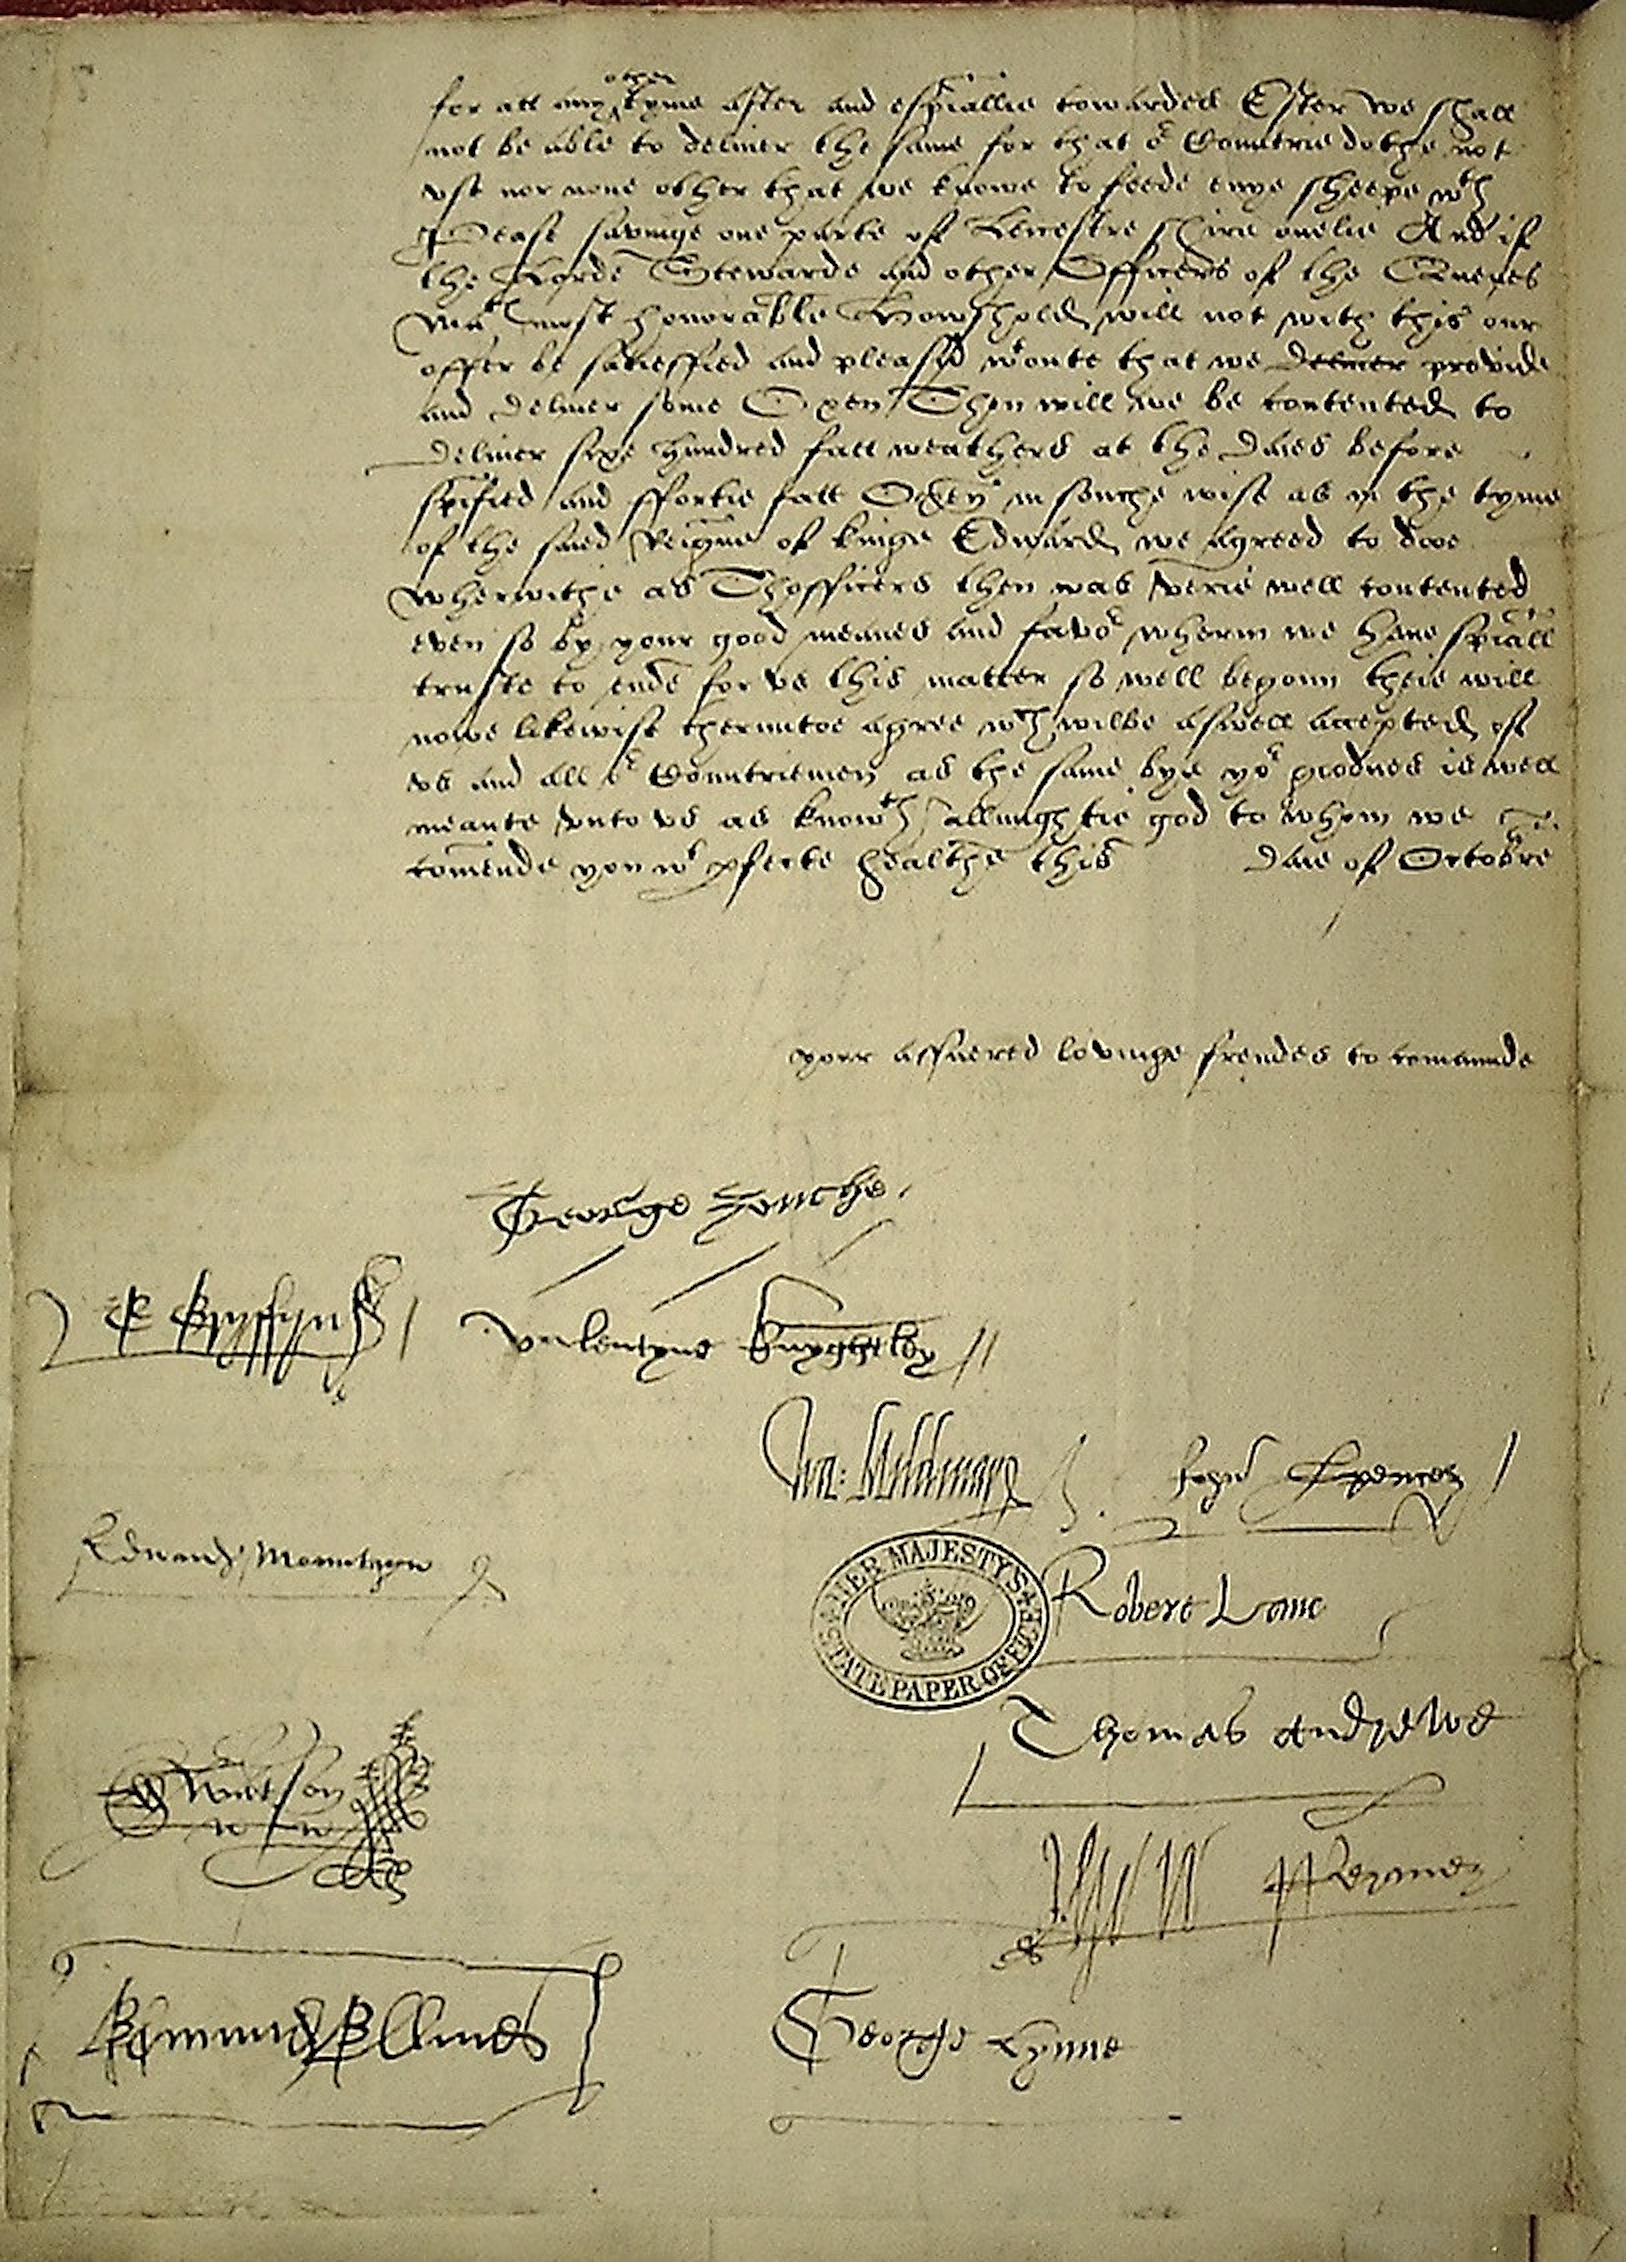 other
for all any tyme after and espiallie towardes Ester we shall
not be able to deliuer the same for that or Countrie dothe not
vse nor none other that we knowe to feede enye sheepe wth
Pease savinge one parte of Leicestre shire onelie And if
the Lorde Stewarde and other Officers of the Quenes
Matis most honorable Howshold will not with this our
offer be satieffied and pleasyd wtoute that we deliuer provide
and deliuer some Oxen Then will we be contented to
deliuer sixe hundred fatt weathers at the daies before
spified and ffortie fatt Oxen in souche wise as in the tyme
of the saed Reigne of kinge Edward we agreed to doe
wherwithe as Thofficers then was verie well contented
even so by your good meanes and favor wherin we haue spiall
truste to ende for vs this matter so well begonn theie will
nowe likewise therunto agree wch wilbe aswell accepted of
vs and all or Countriemen as the same bye yor goodnes is well
meante vnto vs as knowth allmightie god to whom we
comende you wt pfecte healthe this daie of Octobre
your assuered lovinge frendes to comaunde
George Zouche
E Gryffyn
Valentyne Knyghtley
Wa: Mildmay
John Spencer
Edward Mountagu
HER MAJESTY'S STATE PAPER OFFICE
Robert Lane
Thomas Andrewe
E Watson
Edmund Ellmes
George Lynne